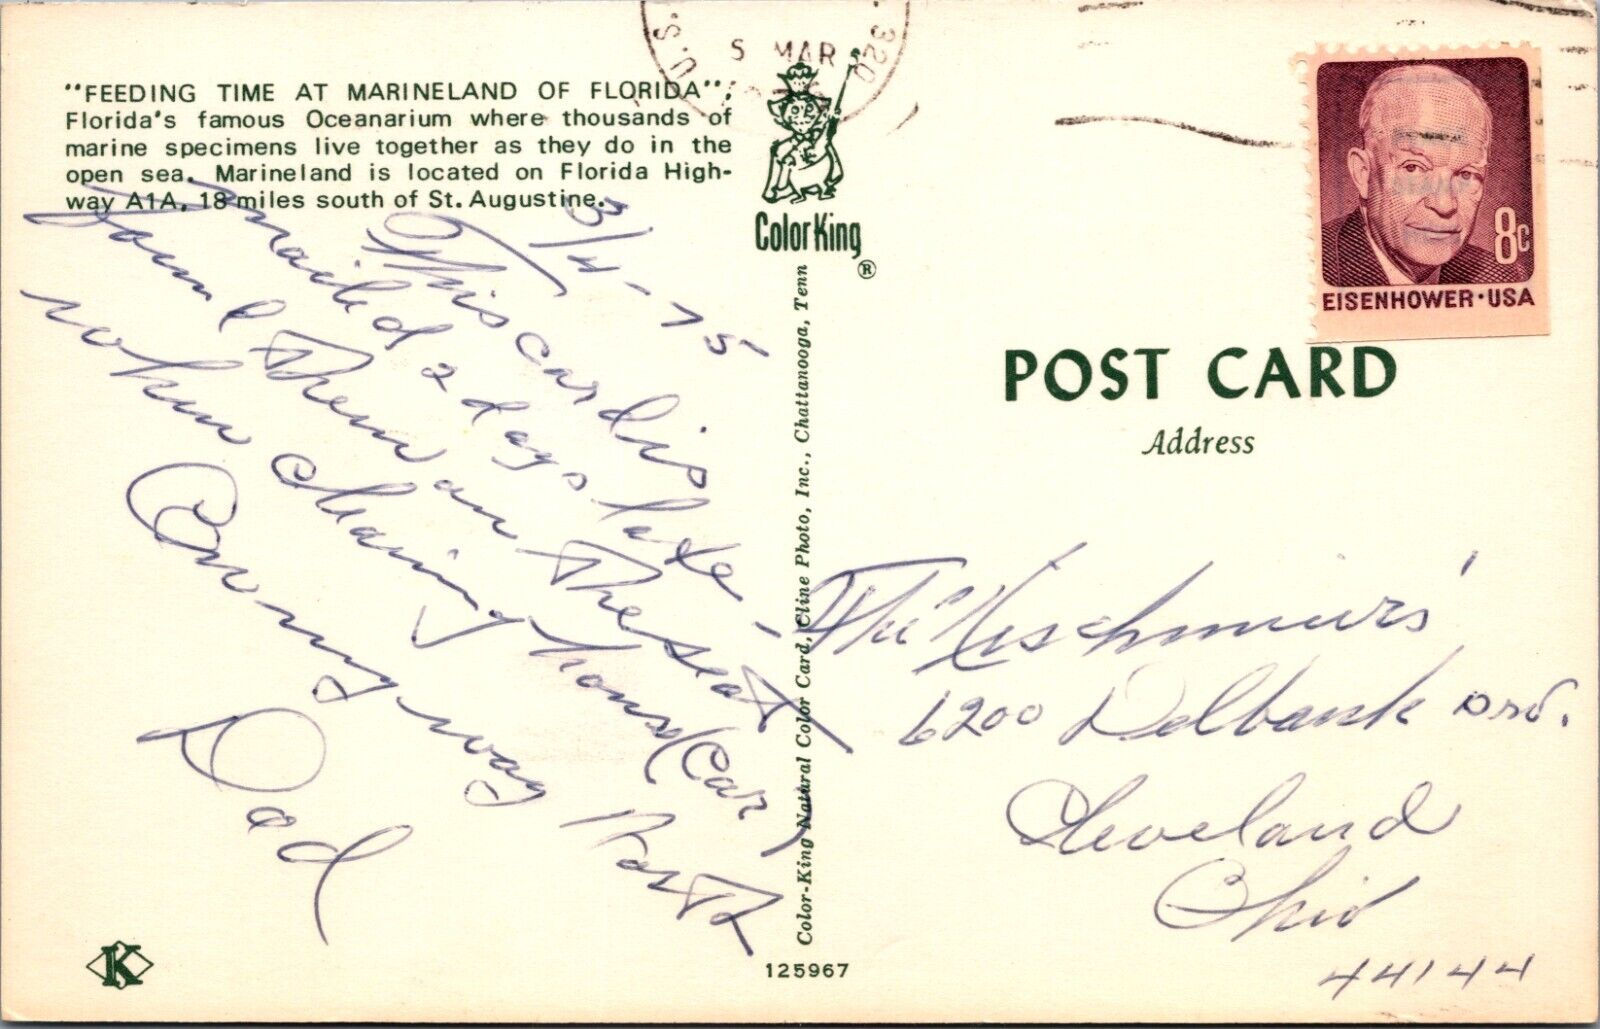 "FEEDING TIME AT MARINELAND OF FLORIDA",
Florida's famous Oceanarium where thousands of
marine specimens live together as they do in the
open sea. Marineland is located on Florida High-
way A1A, 18 miles south of St. Augustine.
3/4-75
This card is
mailed 2 days late -
found them on the seat
when cleaning house (car)
Coming way
North
Dad
U.S.
320
5 MAR
ColorKing
®
Color-King Natural Color Card, Cline Photo, Inc., Chattanooga, Tenn
K
125967
8c
EISENHOWER · USA
POST CARD
Address
The
6200 Delbank
Cleveland
Ohio
44144